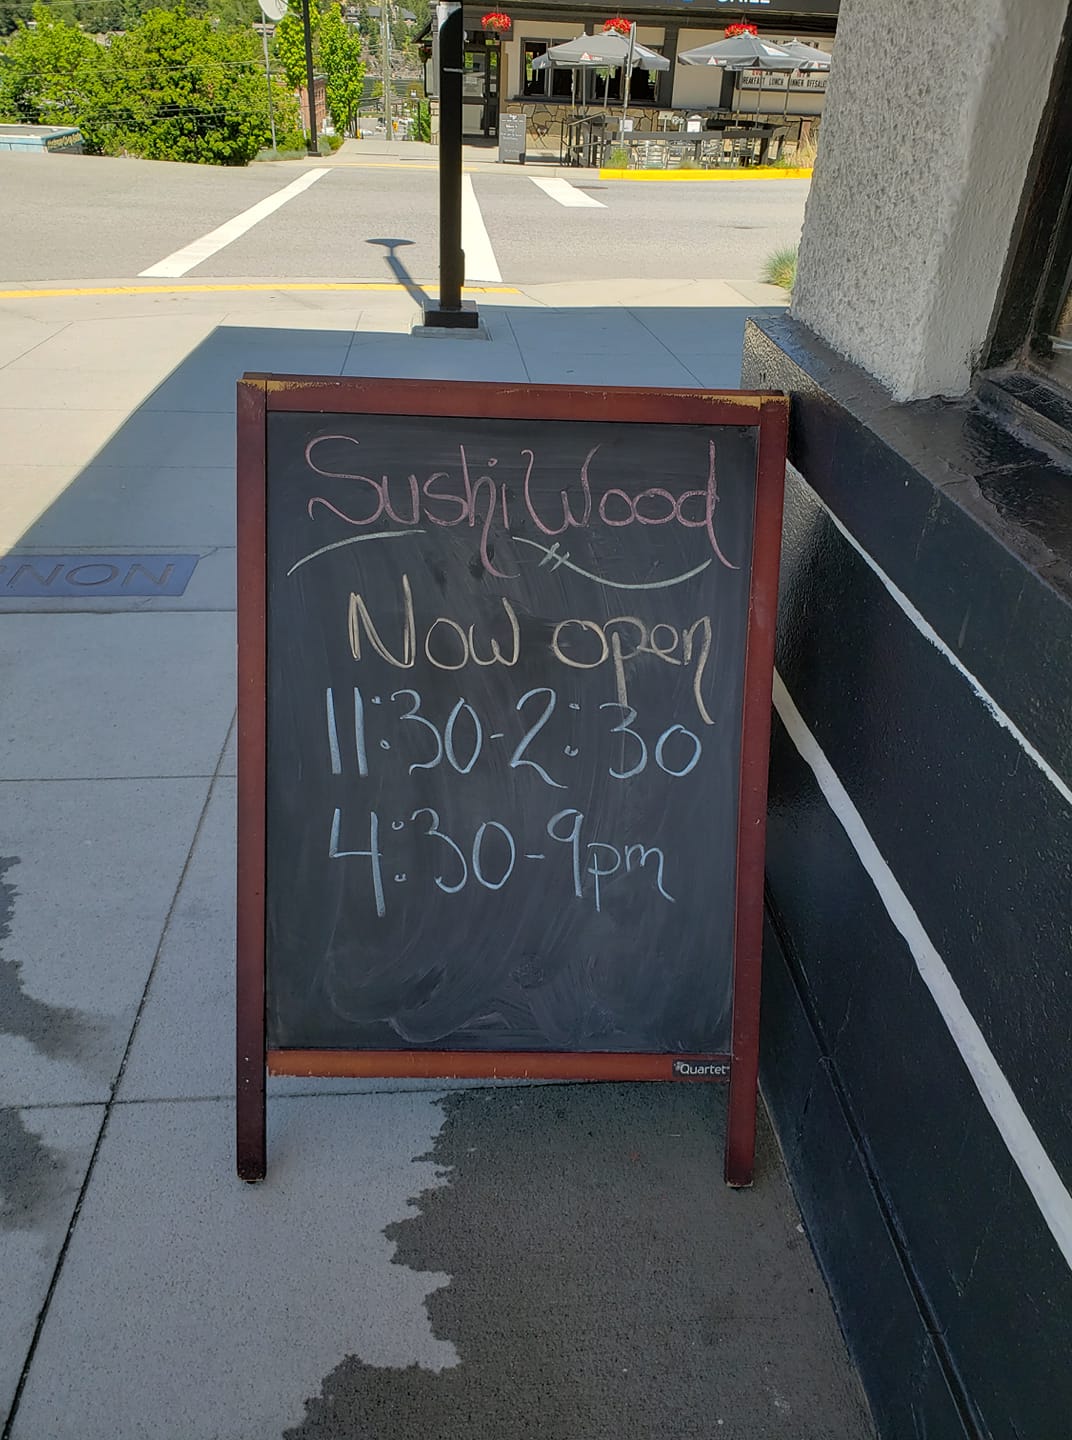 GRILL
BREAKFAST LUNCH DINNER OFFSALES
Sushi Wood
Now open
11:30-2:30
4:30-9pm
Quartet